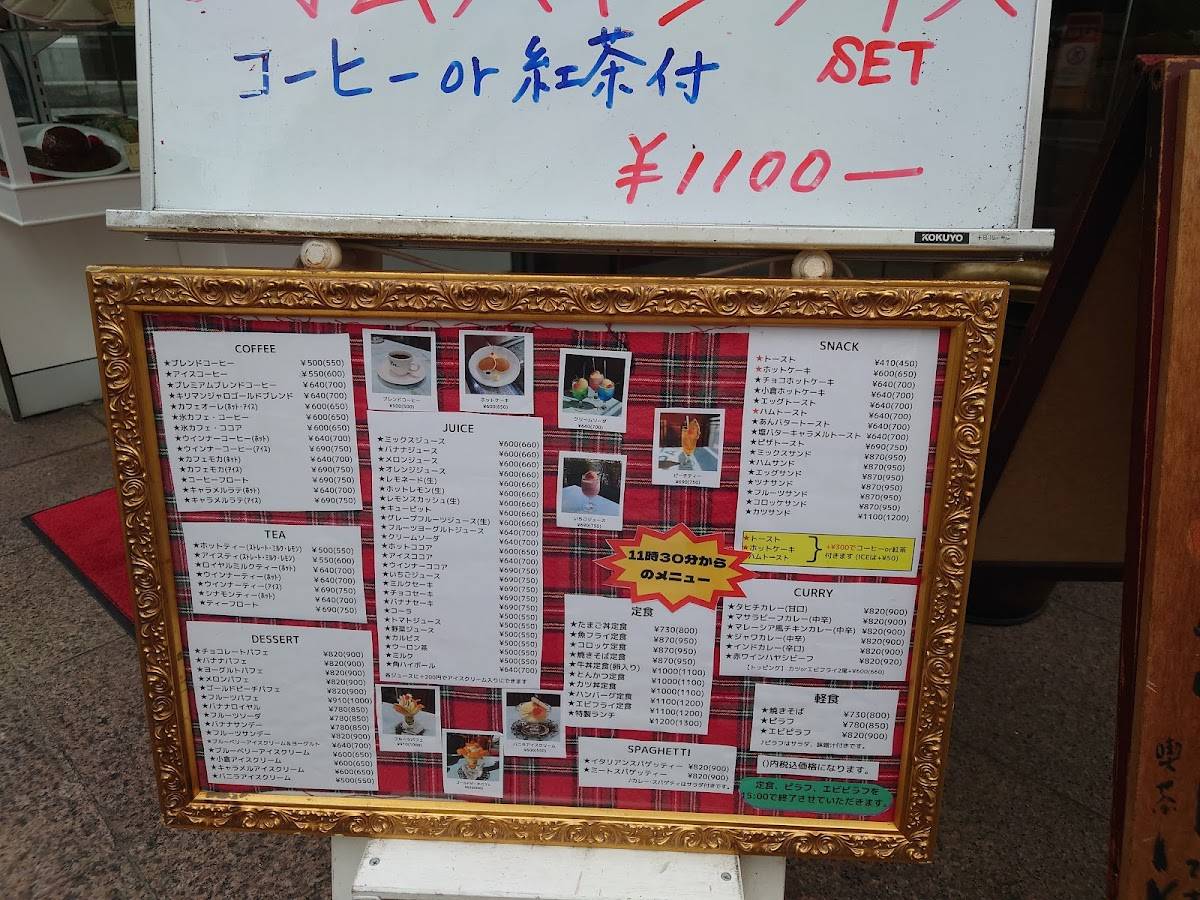 コーヒーor 紅茶付 SET
¥1100ー
KOKUYO
COFFEE
★ブレンドコーヒー ¥500(550)
★アイスコーヒー ¥550(600)
★プレミアムブレンドコーヒー ¥640(700)
★キリマンジャロゴールドブレンド ¥640(700)
★カフェオーレ(ﾎｯﾄ・ｱｲｽ) ¥600(650)
★氷カフェ・コーヒー ¥600(650)
★氷カフェ・ココア ¥600(650)
★ウインナーコーヒー(ﾎｯﾄ) ¥640(700)
★ウインナーコーヒー(ｱｲｽ) ¥690(750)
★カフェモカ(ﾎｯﾄ) ¥640(700)
★カフェモカ(ｱｲｽ) ¥690(750)
★コーヒーフロート ¥690(750)
★キャラメルラテ(ﾎｯﾄ) ¥640(700)
★キャラメルラテ(ｱｲｽ) ¥690(750)
TEA
★ホットティー(ｽﾄﾚｰﾄ・ﾐﾙｸ・ﾚﾓﾝ) ¥500(550)
★アイスティ(ｽﾄﾚｰﾄ・ﾐﾙｸ・ﾚﾓﾝ) ¥550(600)
★ロイヤルミルクティー(ﾎｯﾄ) ¥640(700)
★ウインナーティー(ﾎｯﾄ) ¥640(700)
★ウインナーティー(ｱｲｽ) ¥690(750)
★シナモンティー(ﾎｯﾄ) ¥640(700)
★ティーフロート ¥690(750)
DESSERT
★チョコレートパフェ ¥820(900)
★バナナパフェ ¥820(900)
★ヨーグルトパフェ ¥820(900)
★メロンパフェ ¥820(900)
★ゴールドピーチパフェ ¥820(900)
★フルーツパフェ ¥910(1000)
★バナナロイヤル ¥780(850)
★フルーツソーダ ¥780(850)
★バナナサンデー ¥780(850)
★フルーツサンデー ¥820(900)
★ブルーベリーアイスクリーム&ヨーグルト ¥640(700)
★ブルーベリーアイスクリーム ¥600(650)
★小倉アイスクリーム ¥600(650)
★キャラメルアイスクリーム ¥600(650)
★バニラアイスクリーム ¥500(550)
ブレンドコーヒー
¥500(550)
ホットケーキ
¥600(650)
クリームソーダ
¥640(700)
ピーチティー
¥690(750)
いちごジュース
¥690(750)
JUICE
★ミックスジュース ¥600(660)
★バナナジュース ¥600(660)
★メロンジュース ¥600(660)
★オレンジジュース ¥600(660)
★レモネード(生) ¥600(660)
★ホットレモン(生) ¥600(660)
★レモンスカッシュ(生) ¥600(660)
★キューピット ¥600(660)
★グレープフルーツジュース(生) ¥600(660)
★フルーツヨーグルトジュース ¥640(700)
★クリームソーダ ¥640(700)
★ホットココア ¥640(700)
★アイスココア ¥640(700)
★ウインナーココア ¥690(750)
★いちごジュース ¥690(750)
★ミルクセーキ ¥690(750)
★チョコセーキ ¥690(750)
★バナナセーキ ¥690(750)
★コーラ ¥500(550)
★トマトジュース ¥500(550)
★野菜ジュース ¥500(550)
★カルピス ¥500(550)
★ウーロン茶 ¥500(550)
★ミルク ¥500(550)
★角ハイボール ¥640(700)
各ジュースに+200円でアイスクリーム入りにできます
フルーツパフェ
¥910(1000)
バニラアイスクリーム
¥500(550)
11時30分から
のメニュー
定食
★たまご丼定食 ¥730(800)
★魚フライ定食 ¥870(950)
★コロッケ定食 ¥870(950)
★焼きそば定食 ¥870(950)
★牛丼定食(卵入り) ¥1000(1100)
★とんかつ定食 ¥1000(1100)
★カツ丼定食 ¥1000(1100)
★ハンバーグ定食 ¥1100(1200)
★エビフライ定食 ¥1100(1200)
★特製ランチ ¥1200(1300)
SPAGHETTI
★イタリアンスパゲッティー ¥820(900)
★ミートスパゲッティー ¥820(900)
♪カレー・スパゲティはサラダ付きです。
SNACK
★トースト ¥410(450)
★ホットケーキ ¥600(650)
★チョコホットケーキ ¥640(700)
★小倉ホットケーキ ¥640(700)
★エッグトースト ¥640(700)
★ハムトースト ¥640(700)
★あんバタートースト ¥640(700)
★塩バターキャラメルトースト ¥640(700)
★ピザトースト ¥690(750)
★ミックスサンド ¥870(950)
★ハムサンド ¥870(950)
★エッグサンド ¥870(950)
★ツナサンド ¥870(950)
★フルーツサンド ¥870(950)
★コロッケサンド ¥870(950)
★カツサンド ¥1100(1200)
★トースト
★ホットケーキ
ハムトースト
+¥300でコーヒーor紅茶
付きます (ICEは+¥50)
CURRY
★タヒチカレー(甘口) ¥820(900)
★マサラビーフカレー(中辛) ¥820(900)
★マレーシア風チキンカレー(中辛) ¥820(900)
★ジャワカレー(中辛) ¥820(900)
★インドカレー(辛口) ¥820(900)
★赤ワインハヤシビーフ ¥820(920)
【トッピング】カツorエビフライ2尾+¥600(660)
軽食
★焼きそば ¥730(800)
★ピラフ ¥780(850)
★エビピラフ ¥820(900)
♪ピラフはサラダ、味噌汁付きです。
()内税込価格になります。
定食、ピラフ、エビピラフを
15:00で終了させていただきます。
喫茶